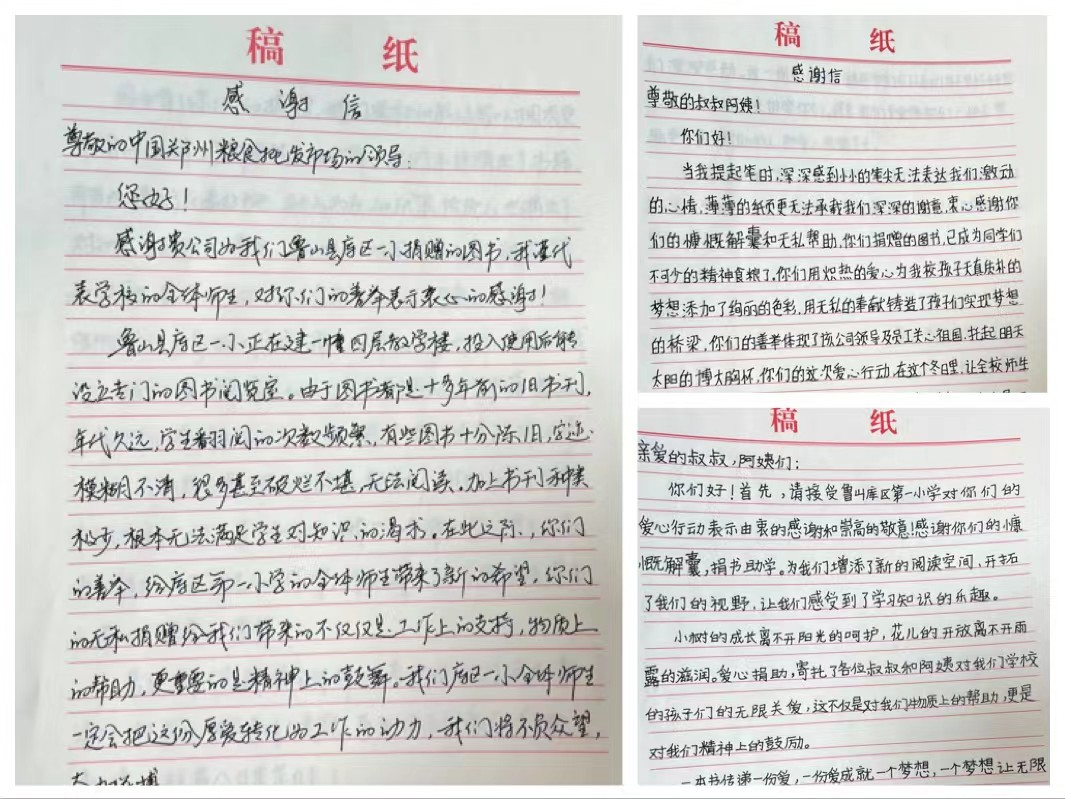 稿 纸
感 谢 信
尊敬的中国郑州粮食批发市场的领导:
您好!
感谢贵公司为我们鲁山县库区一小捐赠的图书,我谨代
表学校的全体师生,对你们的善举表示衷心的感谢!
鲁山县库区一小正在建一幢四层教学楼,投入使用后能
设立专门的图书阅览室。由于图书都是十多年前的旧书刊,
年代久远,学生翻阅的次数频繁,有些图书十分陈旧,字迹
模糊不清,很多甚至破烂不堪,无法阅读。加上书刊种类
稀少,根本无法满足学生对知识的渴求。在此之际,你们
的善举,给库区第一小学的全体师生带来了新的希望,你们
的无私捐赠给我们带来的不仅仅是工作上的支持,物质上
的帮助,更重要的是精神上的鼓舞。我们库区一小全体师生
一定会把这份厚爱转化为工作的动力,我们将不负众望,
稿 纸
感谢信
尊敬的叔叔阿姨!
你们好!
当我提起笔时,深深感到小小的笔尖无法表达我们激动
的心情,薄薄的纸页更无法承载我们深深的谢意,衷心感谢你
们的慷慨解囊和无私帮助,你们捐赠的图书,已成为同学们
不可少的精神食粮了。你们用炽热的爱心为我校孩子天真质朴的
梦想添加了绚丽的色彩,用无私的奉献铸造了孩子们实现梦想
的桥梁,你们的善举体现了该公司领导及员工关心祖国,托起明天
太阳的博大胸怀,你们的这次爱心行动,在这个冬日里,让全校师生
稿 纸
亲爱的叔叔,阿姨们:
你们好!首先,请接受鲁山库区第一小学对你们的
爱心行动表示由衷的感谢和崇高的敬意!感谢你们的慷
慨解囊,捐书助学。为我们增添了新的阅读空间,开拓
了我们的视野,让我们感受到了学习知识的乐趣。
小树的成长离不开阳光的呵护,花儿的开放离不开雨
露的滋润。爱心捐助,寄托了各位叔叔和阿姨对我们学校
的孩子们的无限关爱,这不仅是对我们物质上的帮助,更是
对我们精神上的鼓励。
一本书传递一份爱,一份爱成就一个梦想,一个梦想让无限